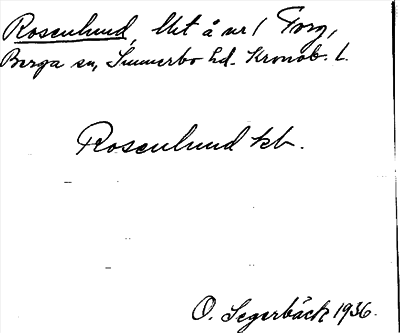 Rosenlund, lht å nr 1 Torg,
Berga sn, Sunnerbo hd. Kronob. l.
Rosenlund kb.
O. Segerbäck 1936.